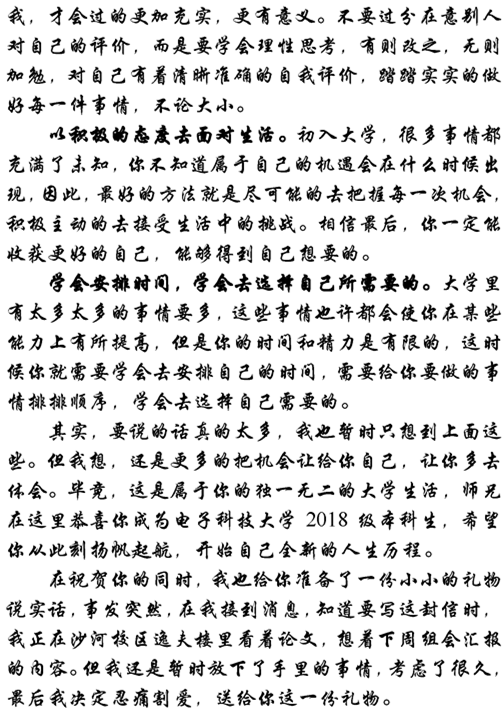 我，才会过的更加充实，更有意义。不要过分在意别人
对自己的评价，而是要学会理性思考，有则改之，无则
加勉，对自己有着清晰准确的自我评价，踏踏实实的做
好每一件事情，不论大小。
以积极的态度去面对生活。初入大学，很多事情都
充满了未知，你不知道属于自己的机遇会在什么时候出
现，因此，最好的方法就是尽可能的去把握每一次机会，
积极主动的去接受生活中的挑战。相信最后，你一定能
收获更好的自己，能够得到自己想要的。
学会安排时间，学会去选择自己所需要的。大学里
有太多太多的事情要多，这些事情也许都会使你在某些
能力上有所提高，但是你的时间和精力是有限的，这时
候你就需要学会去安排自己的时间，需要给你要做的事
情排排顺序，学会去选择自己需要的。
其实，要说的话真的太多，我也暂时只想到上面这
些。但我想，还是更多的把机会让给你自己，让你多去
体会。毕竟，这是属于你的独一无二的大学生活，师兄
在这里恭喜你成为电子科技大学 2018 级本科生，希望
你从此刻扬帆起航，开始自己全新的人生历程。
在祝贺你的同时，我也给你准备了一份小小的礼物
说实话，事发突然，在我接到消息，知道要写这封信时，
我正在沙河校区逸夫楼里看着论文，想着下周组会汇报
的内容。但我还是暂时放下了手里的事情，考虑了很久，
最后我决定忍痛割爱，送给你这一份礼物。